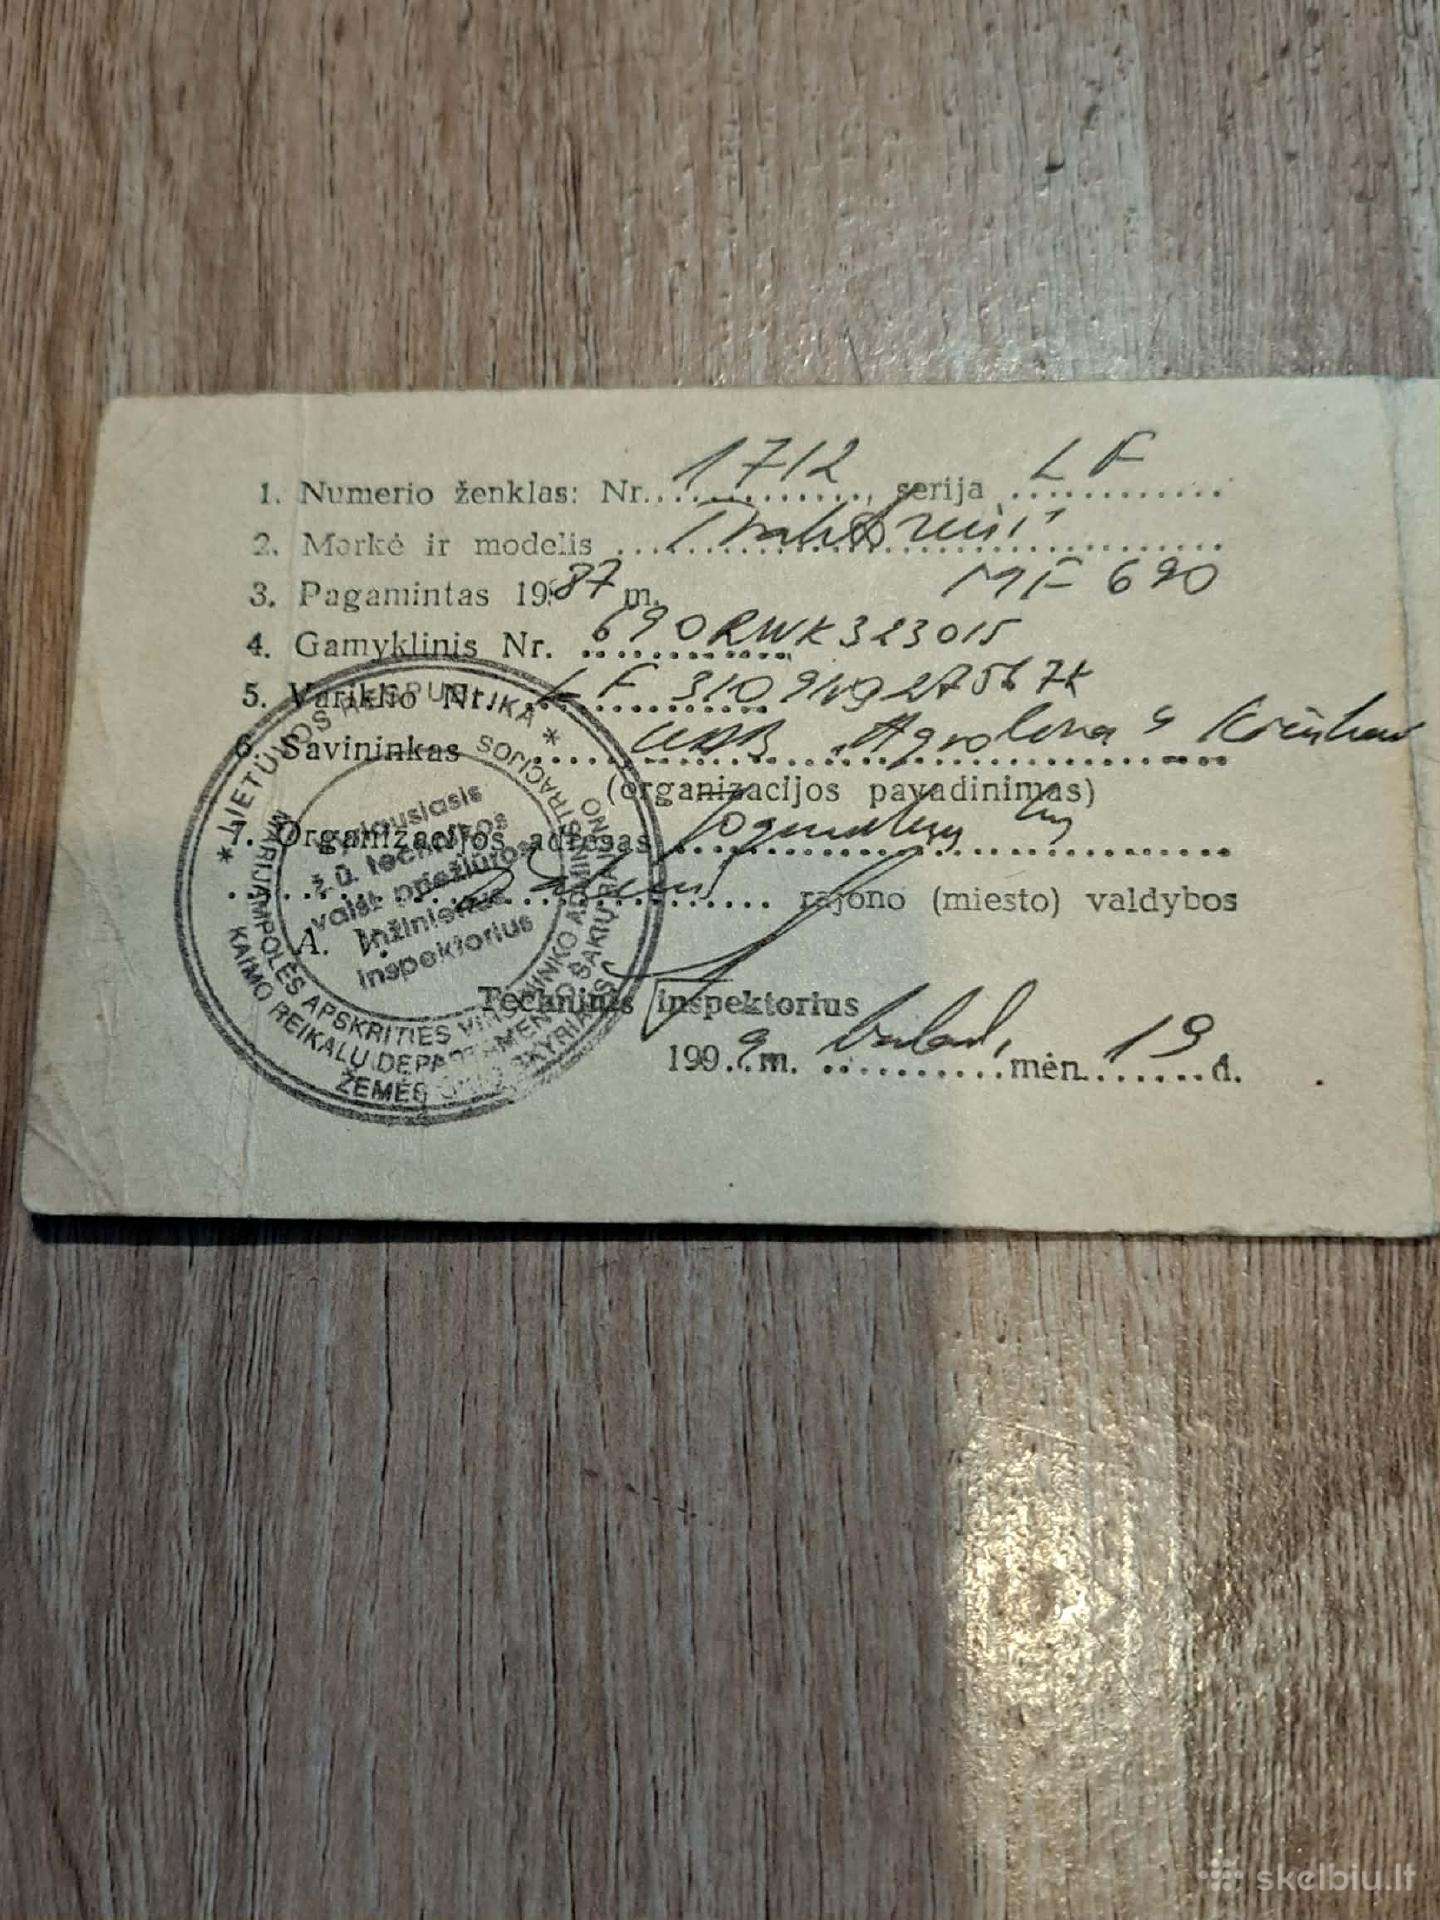 1. Numerio ženklas: Nr. 1712, serija LF
2. Markė ir modelis Traktorius
3. Pagamintas 1987 m. MF 690
4. Gamyklinis Nr. 690RWK323015
5. Variklio Nr. LF
6. Savininkas UAB „Agrolena"
(organizacijos pavadinimas)
7. Organizacijos adresas
rajono (miesto) valdybos
A. V.
Techninis inspektorius
1999 m. mėn. 19 d.
* LIETUVOS RESPUBLIKA *
MARIJAMPOLĖS APSKRITIES VIRŠININKO ADMINISTRACIJOS
KAIMO REIKALŲ DEPARTAMENTO ŠAKIŲ RAJONO
ŽEMĖS ŪKIO SKYRIAUS
Vyriausiasis
ž.ū. technikos
valst. priežiūros
inžinierius
inspektorius
skelbiu.lt